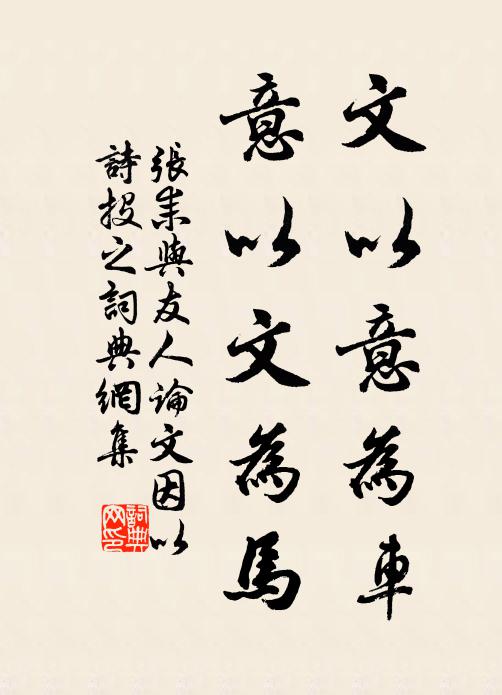 文以意為車
意以文為馬
張耒與友人論文因以
詩投之詞典網集
詞典
网印